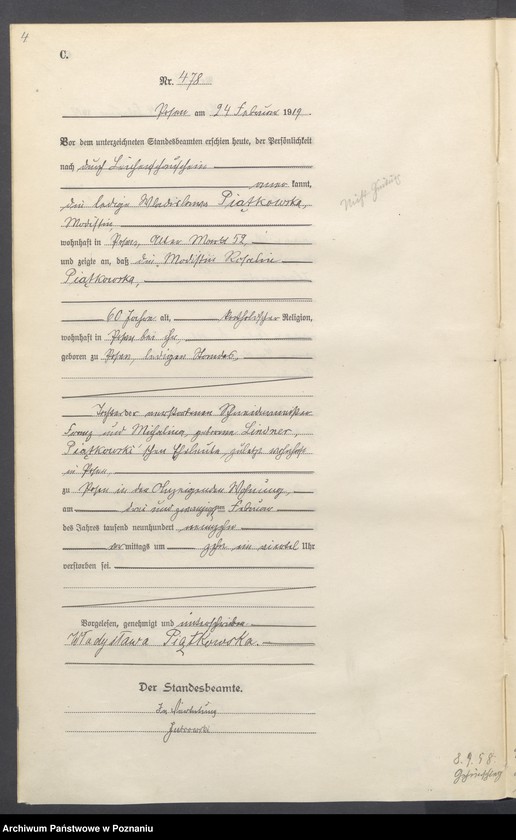 4
C.
Nr. 478
Posen am 24 Februar 1919.
Vor dem unterzeichneten Standesbeamten erschien heute, der Persönlichkeit
nach durch Leichenschauschein
aner kannt,
die ledige Wladislawa Piątkowska,
Modistin,
wohnhaft in Posen, Alter Markt 52,
und zeigte an, daß die Modistin Rosalie
Piątkowska,
60 Jahre alt, katholischer Religion,
wohnhaft in Posen bei ihr,
geboren zu Posen, ledigen Standes,
Tochter der verstorbenen Schneidermeister
Franz und Michalina, geborene Lindner,
Piątkowski'schen Eheleute, zuletzt wohnhaft
in Posen,
zu Posen in der Anzeigenden Wohnung,
am drei und zwanzigsten Februar
des Jahres tausend neunhundert neunzehn
vormittags um zehn ein viertel Uhr
verstorben sei.
Vorgelesen, genehmigt und unterschrieben
Władysława Piątkowska.
Der Standesbeamte.
In Vertretung
8.9.58
Archiwum Państwowe w Poznaniu